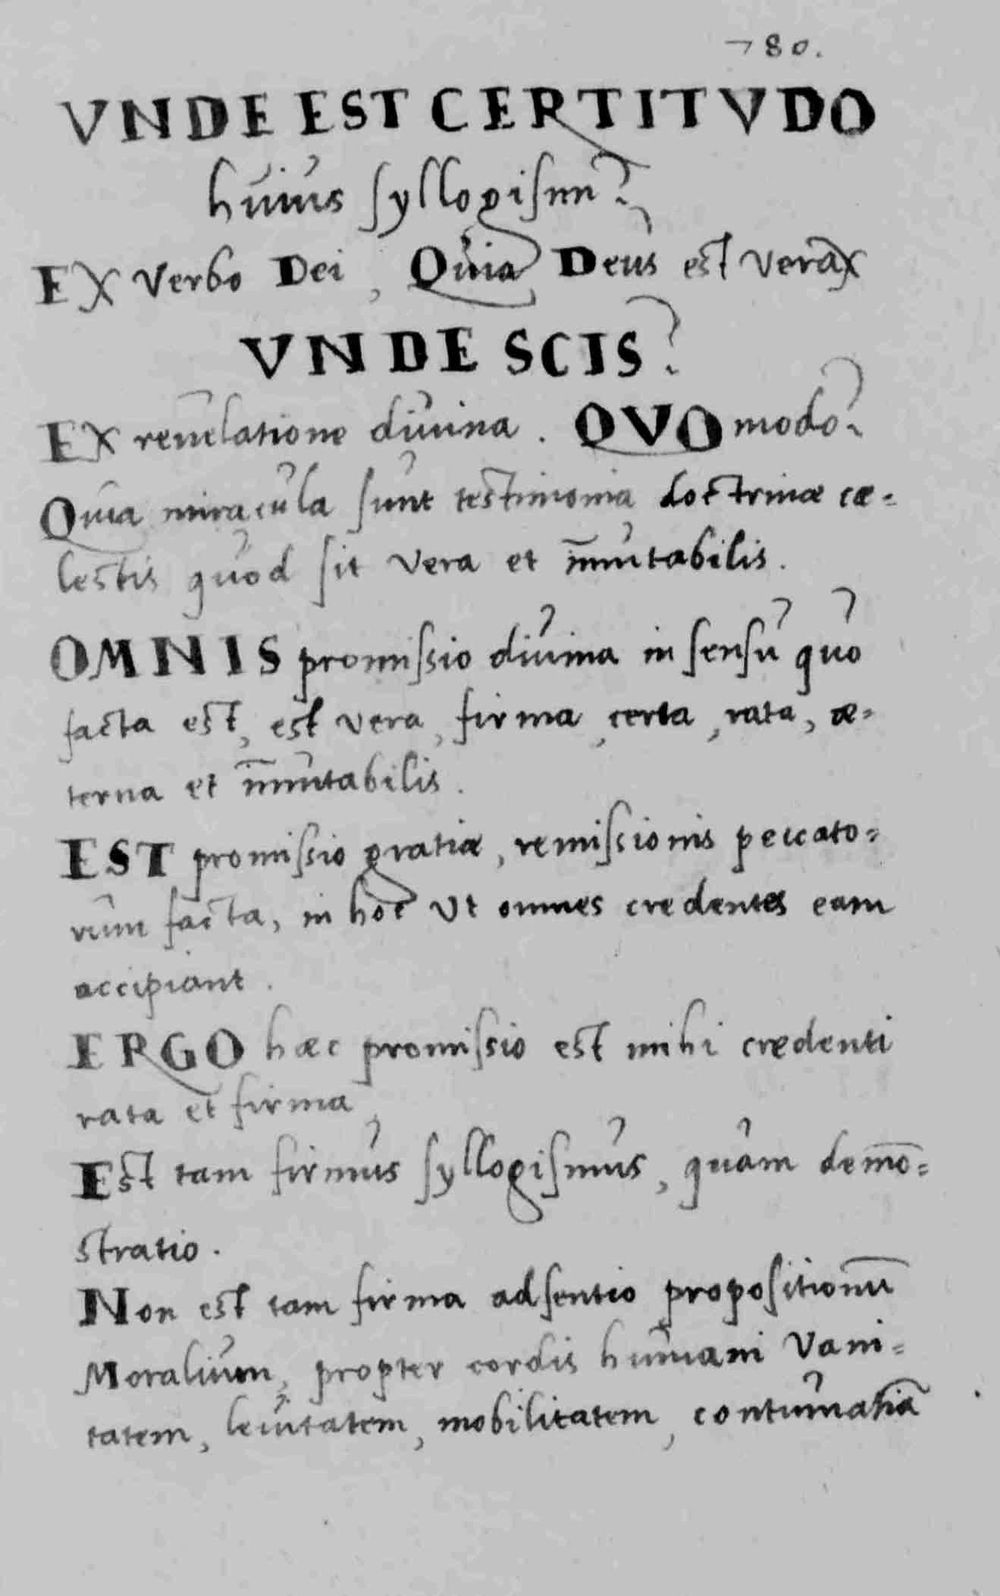 780.
VNDE EST CERTITVDO
huius syllogismi?
EX verbo Dei, Quia Deus est verax
VNDE SCIS?
EX reuelatione diuina. QVO modo?
Quia miracula sunt testimonia doctrinæ cæ-
lestis quod sit vera et im̄utabilis.
OMNIS promissio diuina in sensu quo
facta est, est vera, firma, certa, rata, æ-
terna et im̄utabilis.
EST promissio gratiæ, remissionis peccato-
rum facta, in hoc vt omnes credentes eam
accipiant.
ERGO hæc promissio est mihi credenti
rata et firma,
Est tam firmus syllogismus, quam demō-
stratio.
Non est tam firma adsentio propositionū
Moralium, propter cordis humani vani-
tatem, leuitatem, mobilitatem, contumatiā